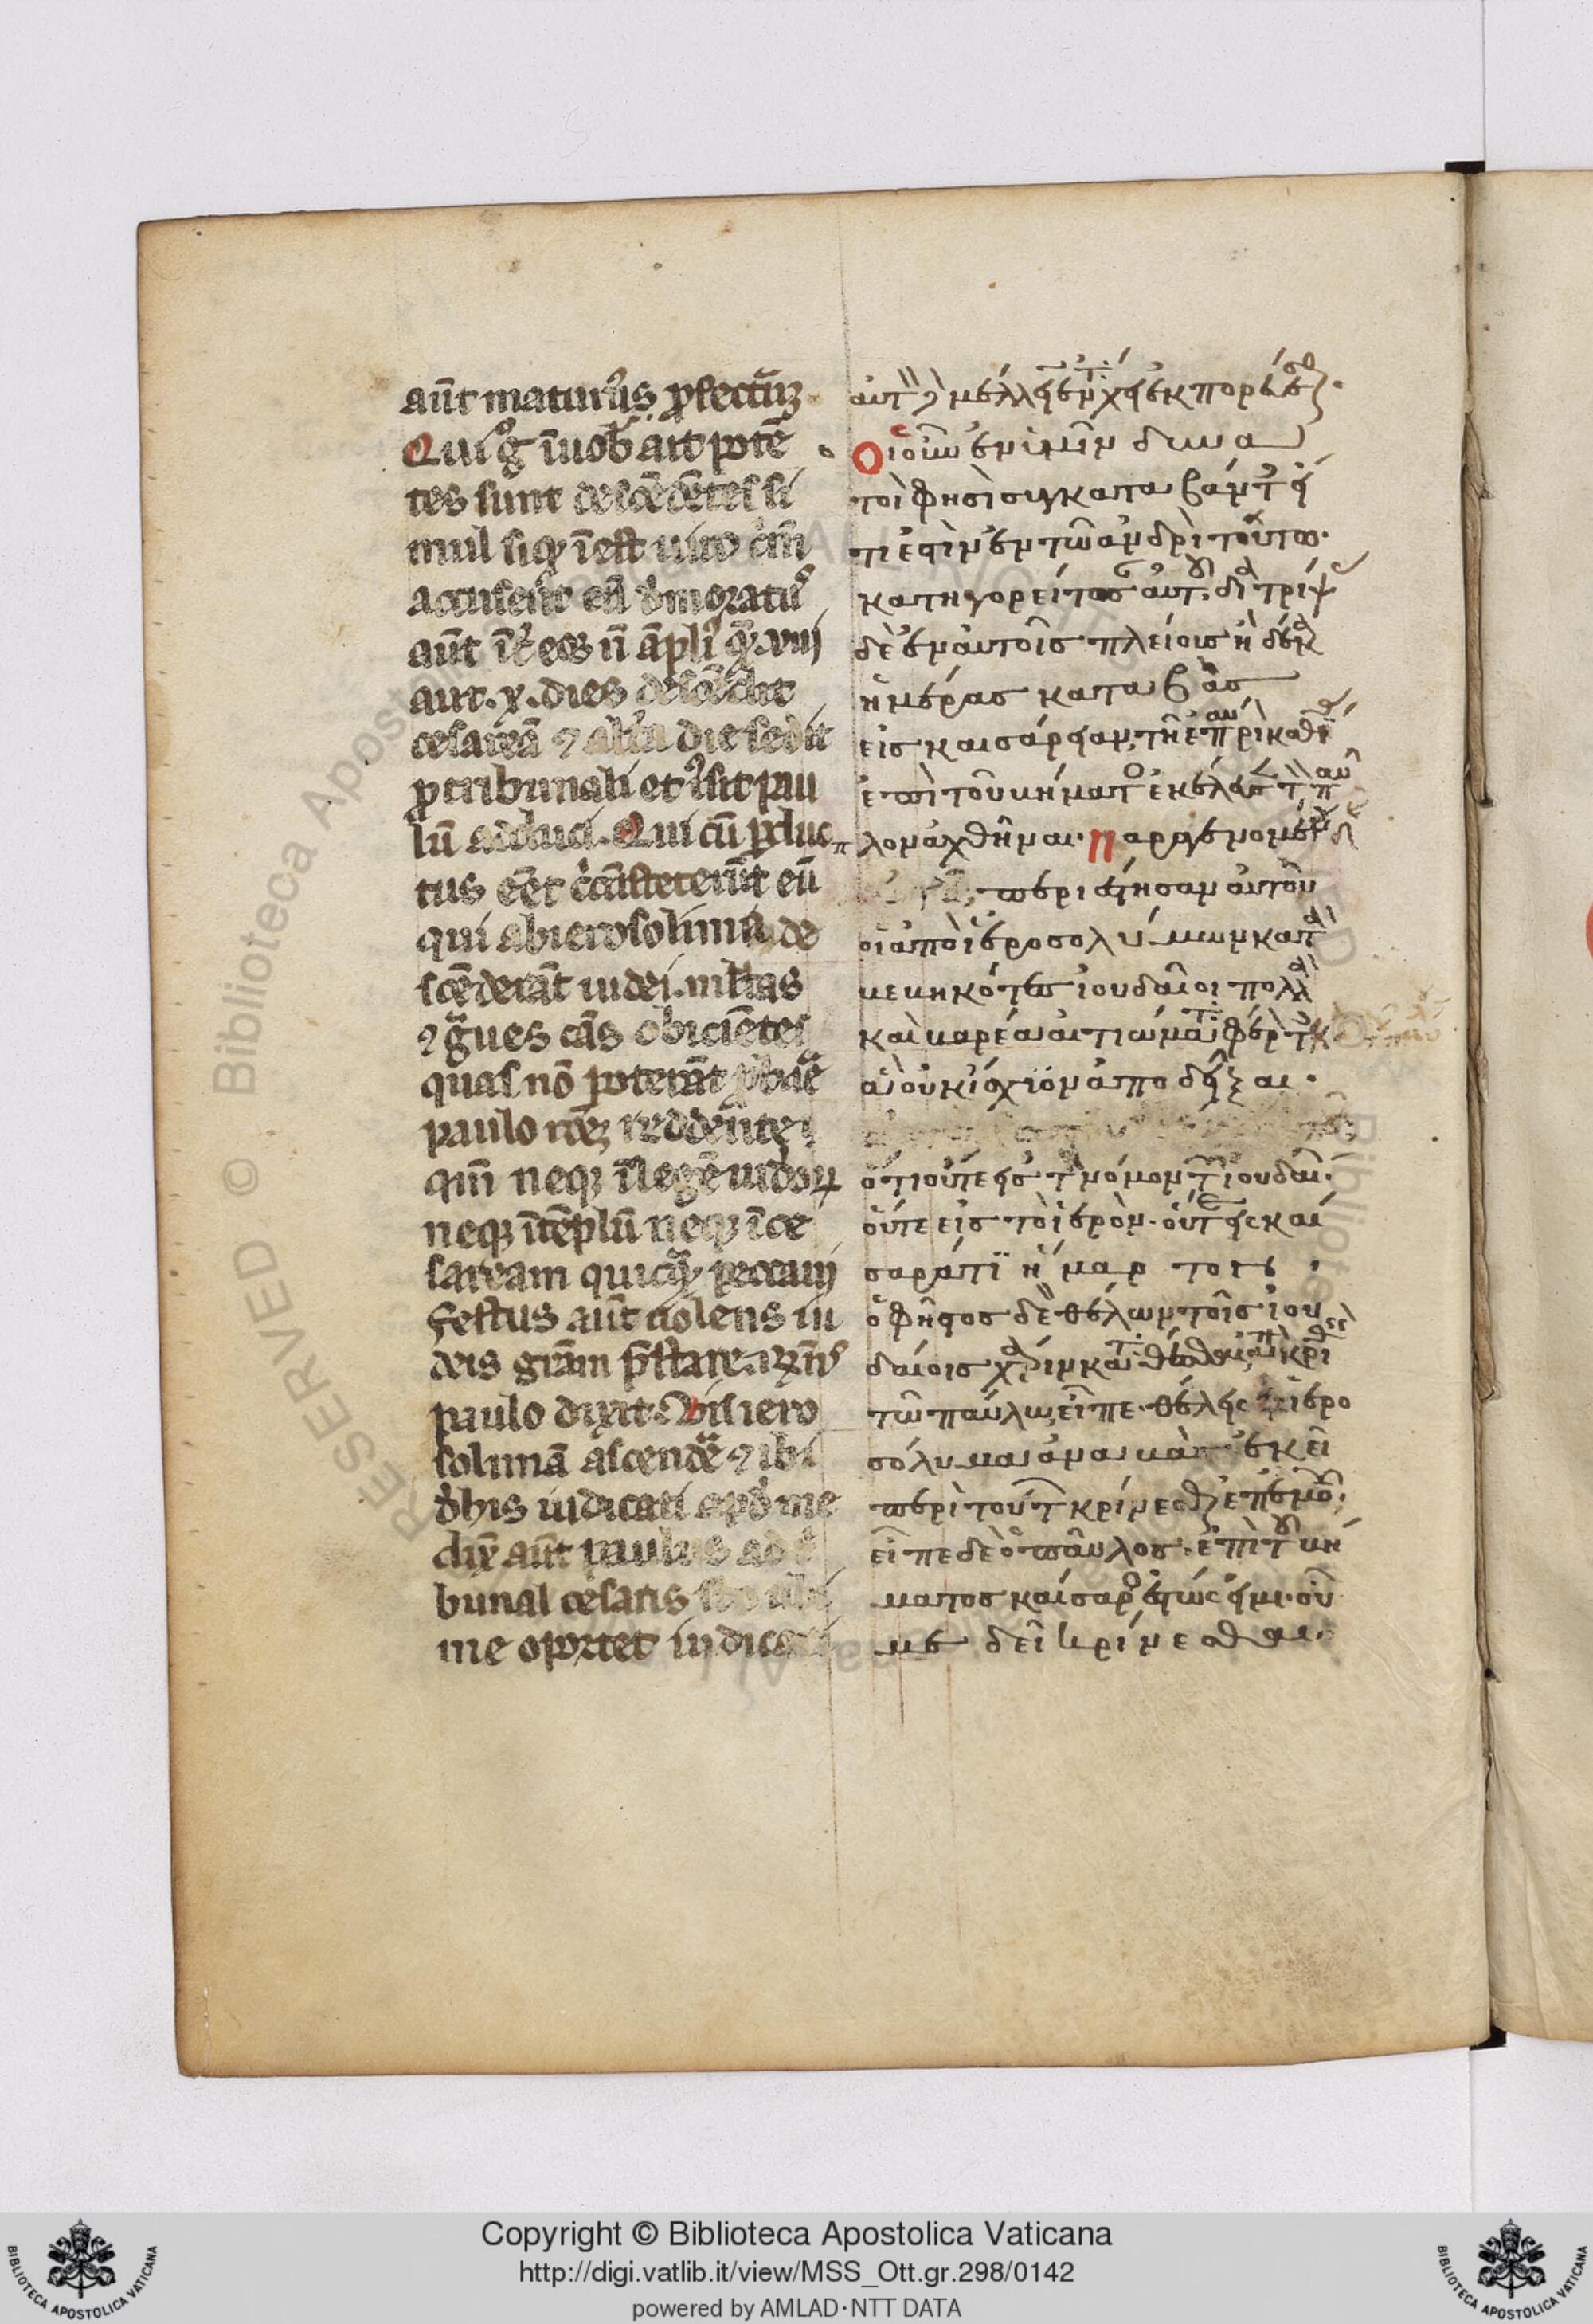 aūt maturiꝰ ꝓfecturū
Qui g° ī uob ait potē
tes sunt descēdētes si
mul siqͥ ī est uiro cͥm̄
accusēt eū d̄moratꝰ
aūt īt͛ eos n̄ āpliꝰ qͣ .viij
aut .x. dies descēdit
cesareā ⁊ altͣa die sedit
ꝓ tribunali et iussit pau
lū adduci. Qui cū ꝑduc
tus eēt cͥcūsteterūt eū
qui ab ierosolima de
scēderāt iudei. multas
⁊ gͣues cās obiciētes
quas nō poterāt ꝓbaͬe
paulo rōeꝫ reddente
qm̄ neqꝫ ī legē iudeoꝝ
neqꝫ ī tēplū neqꝫ ī ce
saream quicqͣ peccaui
festus aūt uolens iu
deis gratiam p̄stare. rn̄s
paulo dixit. Vis iero
solimā ascendeͬ ⁊ ibi
d̄ his iudicari apd̄ me
dix̄ aūt paulus ad
bunal cesaris
me oportet iudicari
οἱ οὖν ἐν ὑμῖν δυνα
τοὶ φησὶ συγκαταβάντες
τι ἐστὶν ἐν τῶ ἀνδρὶ τούτω·
κατηγορείτωσαν αὐτοῦ. διατρίψας
δὲ ἐν αὐτοῖς πλείους ἢ δέκα
ἡμέρας καταβὰς
εἰς καισάρειαν, τῆ ἐπαύριον καθίσας
ἐπὶ τοῦ βήματος ἐκέλευσε τὸν παῦ
λον ἀχθῆναι· παραγενομένου δὲ
περιέστησαν αὐτὸν
οἱ ἀπὸ ἱεροσολύμων κατα
βεβηκότες ἰουδαῖοι πολλὰ
καὶ βαρέα αἰτιώματα φέροντες
ἃ οὐκ ἴσχυον ἀποδεῖξαι·
ὅτι οὔτε εἰς τὸν νόμον τῶν ἰουδαίων·
οὔτε εἰς τὸ ἱερὸν· οὔτε εἰς και
σαρά τι ἥμαρτον·
ὁ φῆστος δὲ θέλων τοῖς ἰου
δαίοις χάριν καταθέσθαι, ἀποκριθεὶς
τῶ παύλω, εἶπε· θέλεις εἰς ἱερο
σόλυμα ἀναβὰς ἐκεῖ
περὶ τούτων κρίνεσθαι ἐπ' ἐμοῦ·
εἶπε δὲ ὁ παῦλος· ἐπὶ τοῦ βή
ματος καίσαρος ἑστώς εἰμι· οὗ
με δεῖ κρίνεσθαι·
Copyright © Biblioteca Apostolica Vaticana
http://digi.vatlib.it/view/MSS_Ott.gr.298/0142
powered by AMLAD·NTT DATA
BIBLIOTECA APOSTOLICA VATICANA
BIBLIOTECA APOSTOLICA VATICANA